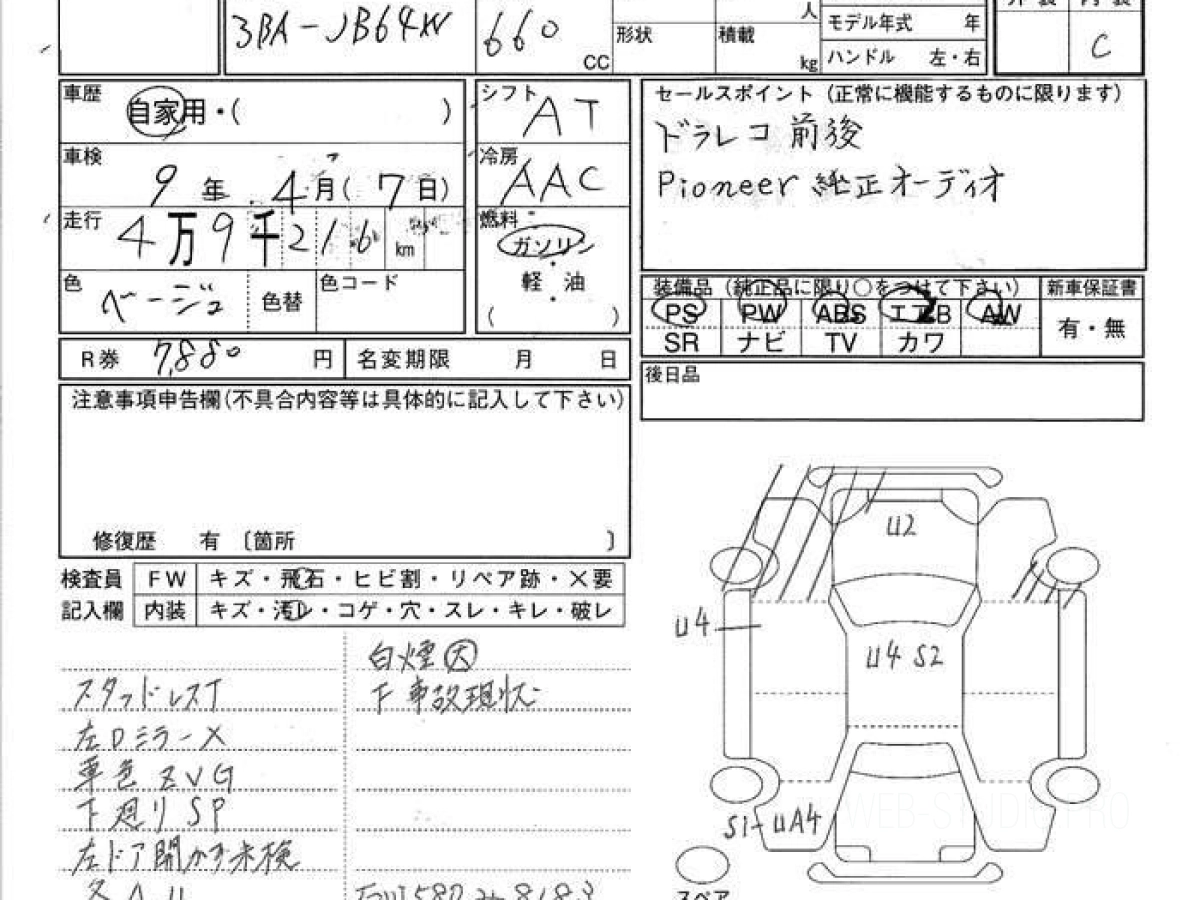 3BA-JB64W
660
CC
形状
積載
人
kg
モデル年式 年
ハンドル 左・右
C
車歴
自家用・( )
車検
9年 4月(7日)
走行
4万9千216 km
色
ベージュ
色替
色コード
シフト
AT
冷房
AAC
燃料
ガソリン
・
軽・油
( )
セールスポイント(正常に機能するものに限ります)
ドラレコ 前後
Pioneer 純正オーディオ
装備品(純正品に限り○をつけて下さい)
新車保証書
PS PW ABS エアB AW
SR ナビ TV カワ
有・無
R券 7,880 円
名変期限 月 日
後日品
注意事項申告欄(不具合内容等は具体的に記入して下さい)
修復歴 有 〔箇所 〕
検査員
記入欄
FW キズ・飛石・ヒビ割・リペア跡・×要
内装 キズ・汚レ・コゲ・穴・スレ・キレ・破レ
白煙大
スタッドレスT
下 事故現状
左Dミラー×
車色 ZVG
下廻り SP
左ドア開かず未検
U2
U4
U4 S2
S1-UA4
スペア
WEB-STUDIO.PRO